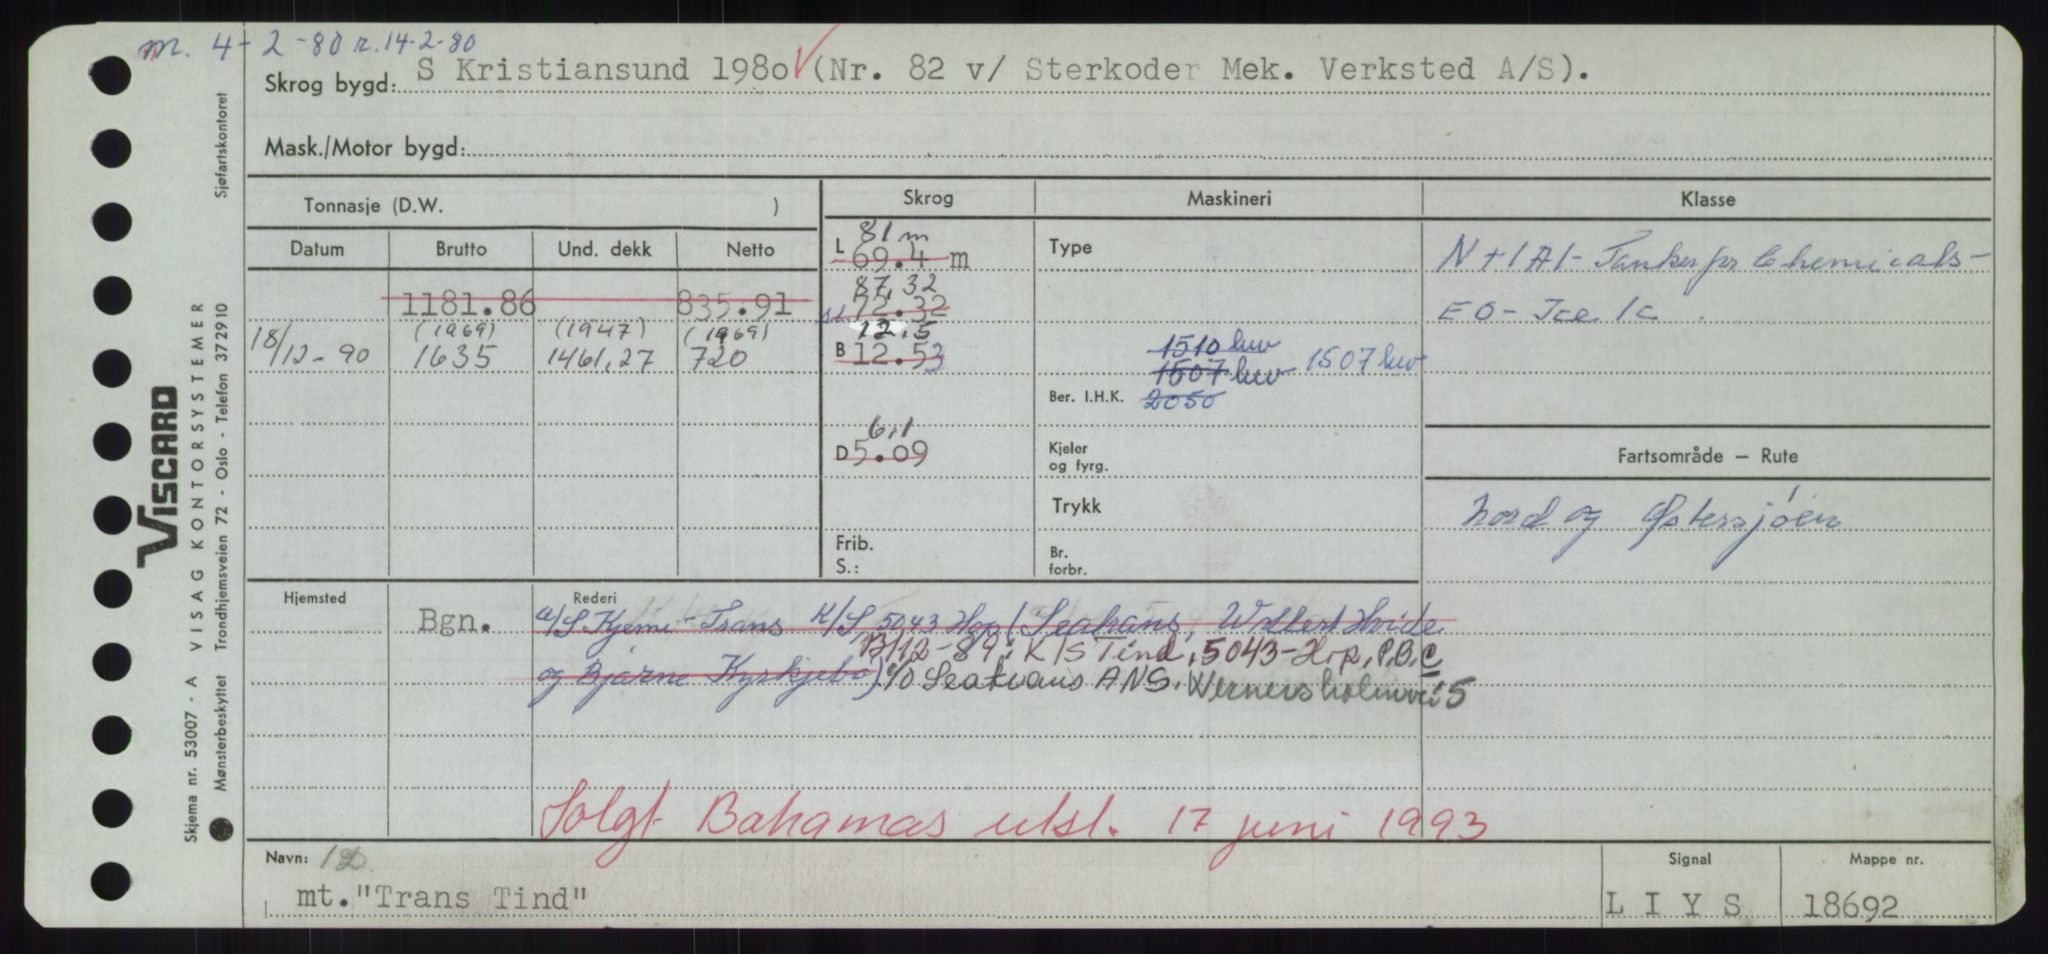 m. 4-2-80 r. 14-2-80
Skrog bygd: S Kristiansund 1980 (Nr. 82 v/ Sterkoder Mek. Verksted A/S).
Mask./Motor bygd:
Tonnasje (D.W. )
Skrog
Maskineri
Klasse
Datum
Brutto
Und. dekk
Netto
1181.86 835.91
(1969) (1947) (1969)
18/12-90 1635 1461,27 720
81 m
L 69.4 m
87,32
72.32
12,5
B 12.53
6,1
D 5.09
Frib.
S.:
Type
1510 hw
1507 hw 1507 hw
Ber. I.H.K. 2050
Kjeler
og fyrg.
Trykk
Br.
forbr.
N + 1A1 - Tanker for Chemicals -
EO - Ice 1C.
Fartsområde – Rute
Nord og Østersjøen
Hjemsted
Bgn.
Rederi
A/S Kjemi-Trans K/S, 5043 Hop (Seatrans, Wollert Hvide
13/12-89: K/S Tind, 5043-Hop, P.B.
og Bjarne Kyrkjebø) c/o Seatrans ANS. Wernersholmvei 5
Solgt Bahamas utsl. 17 juni 1993
Navn:
mt. "Trans Tind"
Signal
L I Y S
Mappe nr.
18692
VISCARD
Skjema nr. 53007 - A VISAG KONTORSYSTEMER
Mønsterbeskyttet Trondhjemsveien 72 - Oslo - Telefon 372910 Sjøfartskontoret